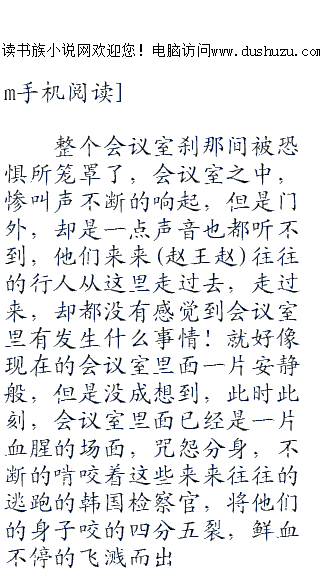 读书族小说网欢迎您！电脑访问www.dushuzu.com
m手机阅读]
整个会议室刹那间被恐
惧所笼罩了，会议室之中，
惨叫声不断的响起，但是门
外，却是一点声音也都听不
到，他们来来(赵王赵)往往
的行人从这里走过去，走过
来，却都没有感觉到会议室
里有发生什么事情！就好像
现在的会议室里面一片安静
般，但是没成想到，此时此
刻，会议室里面已经是一片
血腥的场面，咒怨分身，不
断的啃咬着这些来来往往的
逃跑的韩国检察官，将他们
的身子咬的四分五裂，鲜血
不停的飞溅而出